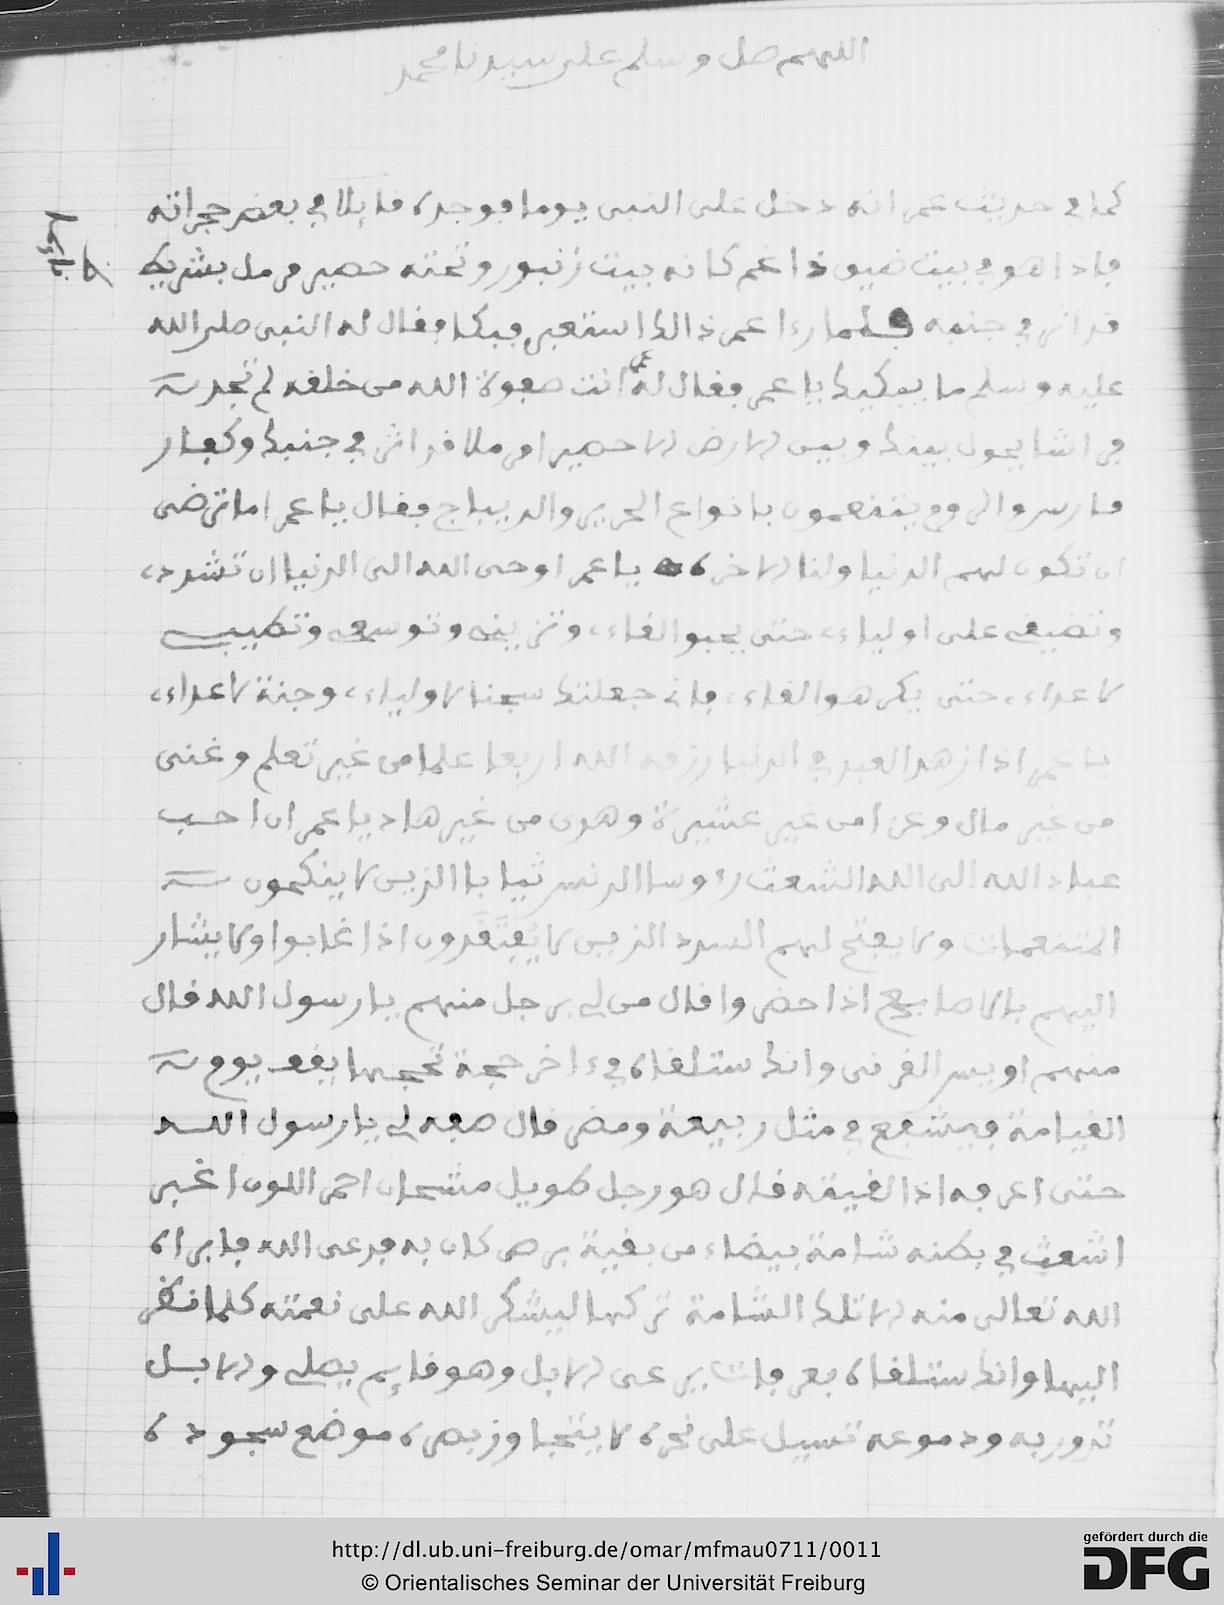 اللهم صل وسلم على سيدنا محمد
كما في حديث عمر انه دخل على النبي يوما فوجده قايلا في بعض حجراته
فاذا هو في بيت ضيق ذا غم كانه بيت زنبور وتحته حصير مرمل بشريط
فراش في جنبه فلما رءا عمر ذالك استعبر فبكا فقال له النبي صلى الله
عليه وسلم ما يبكيك يا عمر فقال له انت صفوة الله من خلقه لم تجد
فراشا يحول بينك وبين الارض الا حصيرا مرملا فراش في جنبك وكفار
فارس والروم يتنعمون بانواع الحرير والديباج فقال يا عمر اما ترضى
ان تكون لهم الدنيا ولنا الاخره يا عمر اوحى الله الى الدنيا ان تشدد
وتضيف على اولياء حتى يحبوا لقاء وتزين وتوسع وتطيب
لاعداء حتى يكرهوا لقاء فاني جعلتك سجنا لاولياء وجنة لاعداء
يا عمر اذا زهد العبد في الدنيا رزقه الله اربعا علما من غير تعلم وغنى
من غير مال وعزا من غير عشيرة وهدى من غير هاد يا عمر ان احب
عباد الله الى الله الشعث رءوسا الدنس ثيابا الذين لا ينكحون
المتنعمات ولا يفتح لهم السدد الذين لا يفتقدون اذا غابوا ولا يشار
اليهم بالاصابع اذا حضروا قال من لي برجل منهم يا رسول الله قال
منهم اويس القرني وانك ستلقاه في ءاخر حجة تحجها يقف يوم
القيامة فيشفع في مثل ربيعة ومضر قال صفه لي يا رسول الله
حتى اعرفه اذا لقيته قال هو رجل طويل احمر اللون اغبر
اشعث في بطنه شامة بيضاء من بقية برص كان به فدعى الله فابراه
الله تعالى منه الا تلك الشامة تركها ليشكر الله على نعمته كلما نظر
اليها وانك ستلقاه بعرفات يرعى الابل وهو قايم يصلي والابل
تدور به ودموعه تسيل على نحره لا يتجاوز بصره موضع سجوده
http://dl.ub.uni-freiburg.de/omar/mfmau0711/0011
© Orientalisches Seminar der Universität Freiburg
gefördert durch die
DFG